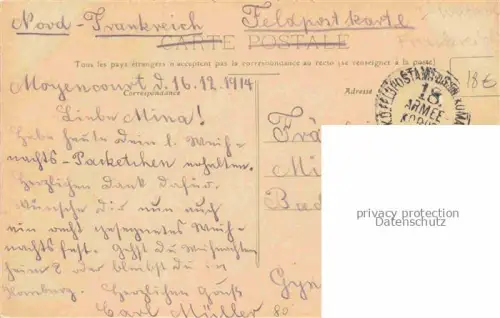 Nord - Frankreich Feldpostkarte
CARTE POSTALE
Tous les pays étrangers n'acceptent pas la correspondance au recto (se renseigner à la poste)
Moyencourt d. 16.12.1914
Correspondance
Adresse
18€
18.
ARMEE-
Liebe Mina!
Habe heute Dein l. Weih-
nachts-Packetchen erhalten.
Herzlichen Dank dafür.
Wünsche Dir nun auch
ein recht gesegnetes Weih-
nachtsfest. Gehst du Weihnachten
heim? oder bleibst du in
Homburg. Herzlichen Gruß
Carl Müller
80
Frä
Mi
Bad
privacy protection
Datenschutz